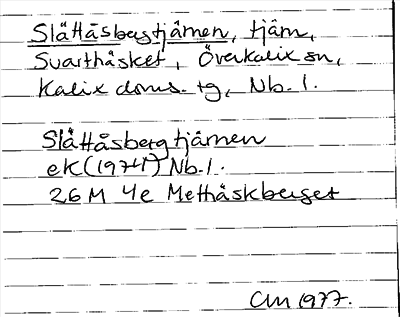 Slåttåsbergstjärnen, tjärn,
Svarthåsket, Överkalix sn,
Kalix doms. tg, Nb. l.
Slåttåsbergtjärnen
eK (1971) Nb. l.
26 M 4e Methåskberget
CM 1977.